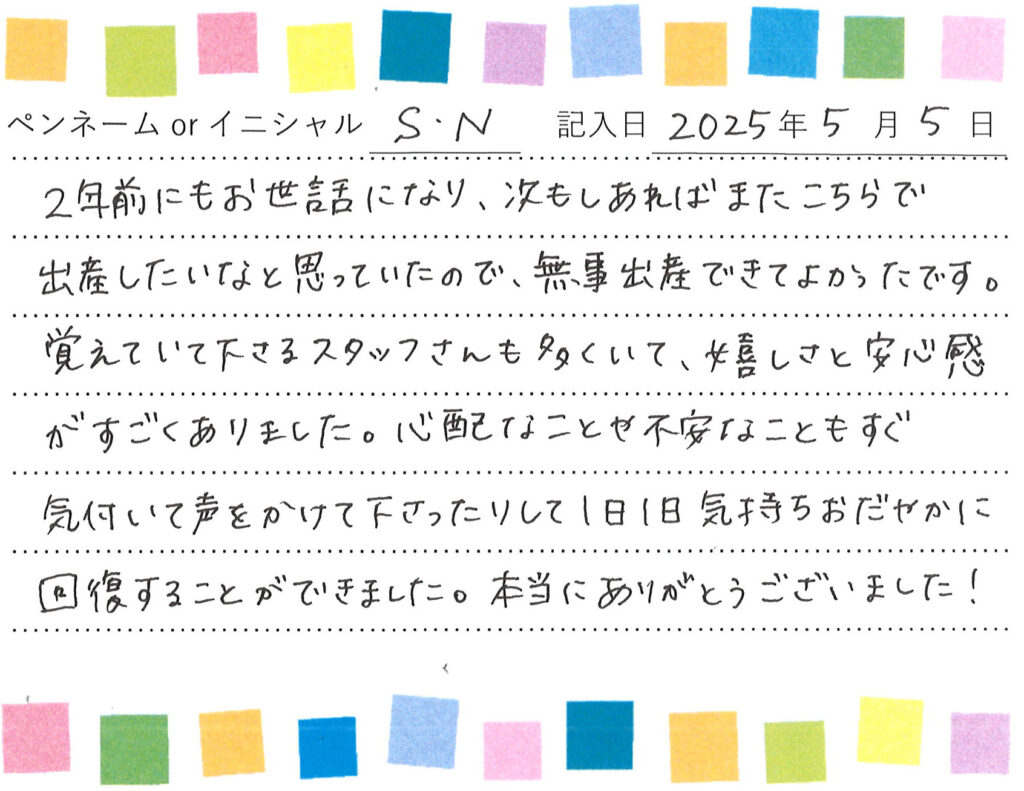 ペンネーム or イニシャル S・N 記入日 2025年5月5日
2年前にもお世話になり、次もしあればまたこちらで
出産したいなと思っていたので、無事出産できてよかったです。
覚えていて下さるスタッフさんも多くいて、嬉しさと安心感
がすごくありました。心配なことや不安なこともすぐ
気付いて声をかけて下さったりして1日1日気持ちおだやかに
回復することができました。本当にありがとうございました！